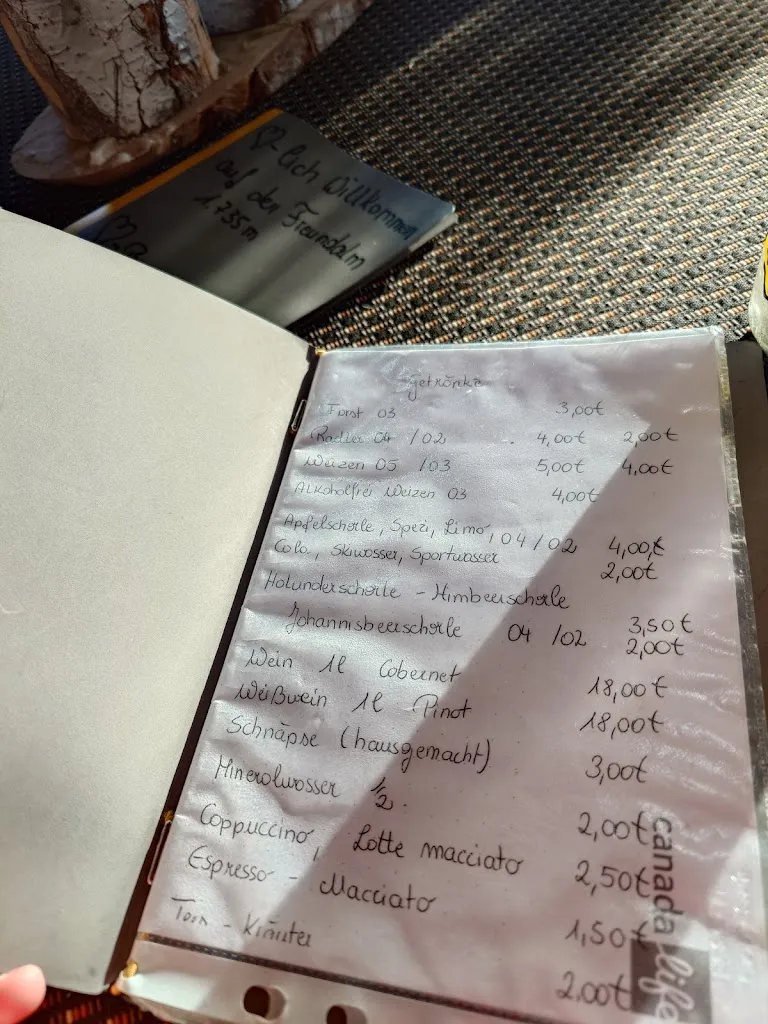 ♡-lich Willkommen
auf der Freundalm
1.735 m
Getränke
Forst 03 3,00€
Radler 04 / 02 4,00€ 2,00€
Weizen 05 / 03 5,00€ 4,00€
Alkoholfrei Weizen 03 4,00€
Apfelschorle, Spezi, Limo, 04 / 02 4,00€
Cola, Skiwasser, Sportwasser 2,00€
Holunderschorle - Himbeerschorle 3,50€
Johannisbeerschorle 04 / 02 2,00€
Wein 1l Cabernet 18,00€
Weißwein 1l Pinot 18,00€
Schnäpse (hausgemacht) 3,00€
Mineralwasser 1/2 2,00€
Cappuccino, Latte macciato 2,50€
Espresso - Macciato 1,50€
Kräuter 2,00€
canada life